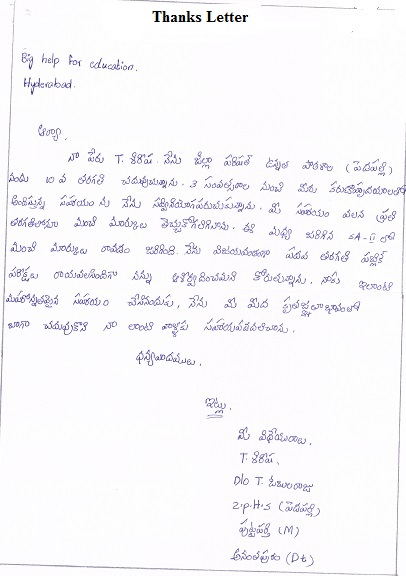 Thanks Letter
Big help for education.
Hyderabad.
ఆర్యా,
నా పేరు T. శిరీష. నేను జిల్లా పరిషత్ ఉన్నత పాఠశాల (పెదపల్లి)
నందు 10 వ తరగతి చదువుచున్నాను. 3 సంవత్సరాల నుంచి మీరు
అందిస్తున్న సహాయం ను నేను సద్వినియోగపరుచుచున్నాను. మీ సహాయం వలన ప్రతి
తరగతిలోనూ మంచి మార్కులు తెచ్చుకోగలిగినాను. ఈ మధ్య జరిగిన SA-II లో
మంచి మార్కులు రావడం జరిగింది. నేను విజయవంతంగా పదవ తరగతి పబ్లిక్
పరీక్షలు రాయవలసిందిగా నన్ను ఆశీర్వదించమని కోరుచున్నాను. నాకు ఇలాంటి
సహాయం చేసినందుకు, నేను మీ మీద కృతజ్ఞతాభావంతో
బాగా చదువుకొని నా లాంటి వాళ్ళకు
ధన్యవాదములు.
ఇట్లు,
మీ విధేయురాలు,
T. శిరీష,
D/o T. ఓబులరాజు
Z.P.H.S (పెదపల్లి)
పుట్టపర్తి (M)
అనంతపురం (Dt)